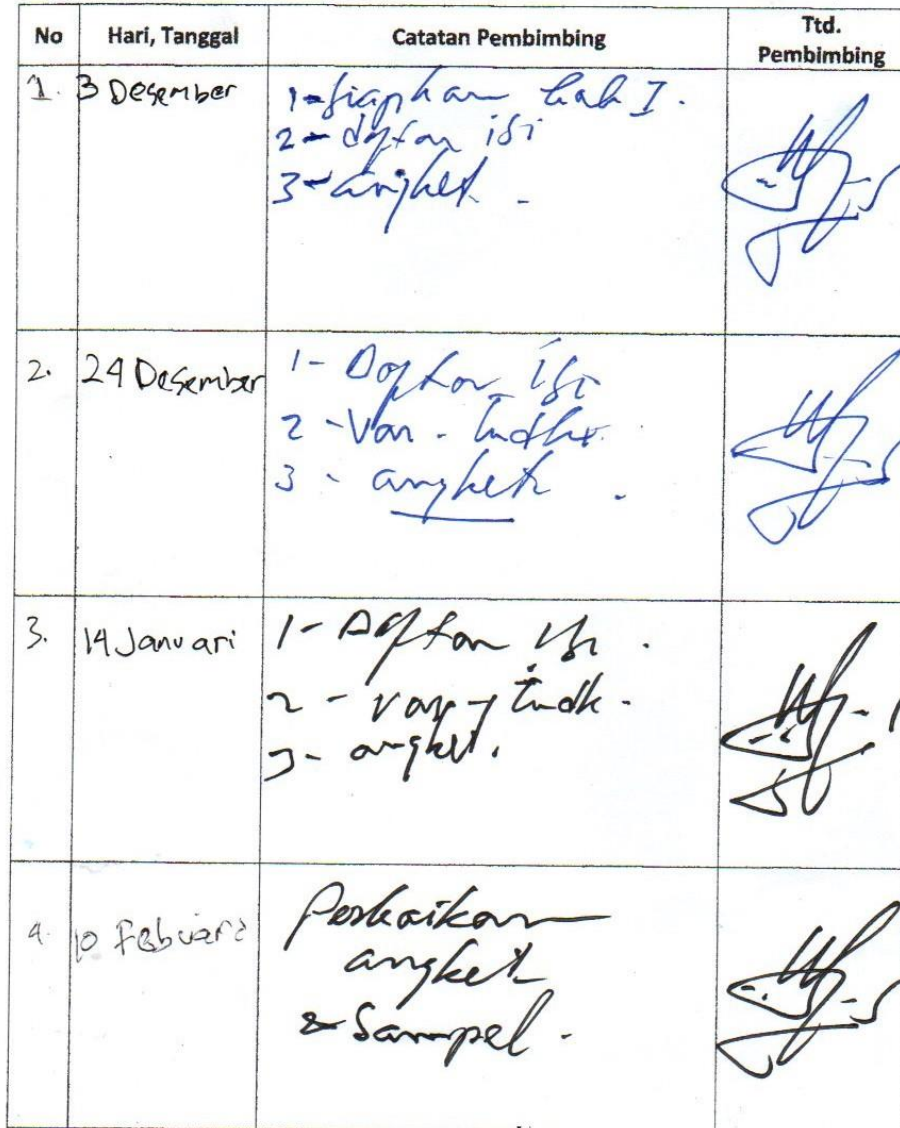 No Hari, Tanggal Catatan Pembimbing Ttd.
Pembimbing
1. 3 Desember 1- siapkan bab I.
2- daftar isi
3- angket.
2. 24 Desember 1- Daftar isi
2- Var.
3- angket.
3. 14 Januari 1- Daftar isi.
2- var
3- angket.
4. 10 Febuari Perbaikan
angket
& Sampel.